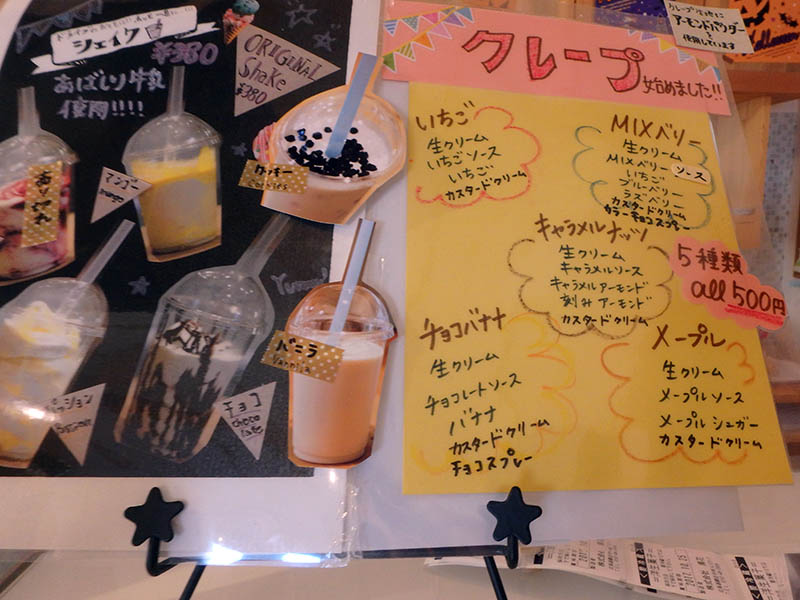 シェイク
¥380
あばしり牛乳
使用!!!!
ORIGINAL
Shake
¥380
クッキー
Cookies
マンゴー
mango
バニラ
Vanilla
チョコ
choco
late
クレープ
始めました!!
アーモンドパウダー
使用しています
いちご
生クリーム
いちごソース
いちご
カスタードクリーム
MIXベリー
生クリーム
MIXベリーソース
いちご
ブルーベリー
ラズベリー
カスタードクリーム
カラーチョコスプレー
キャラメルナッツ
生クリーム
キャラメルソース
キャラメルアーモンド
刻みアーモンド
カスタードクリーム
5種類
all 500円
チョコバナナ
生クリーム
チョコレートソース
バナナ
カスタードクリーム
チョコスプレー
メープル
生クリーム
メープルソース
メープルシュガー
カスタードクリーム